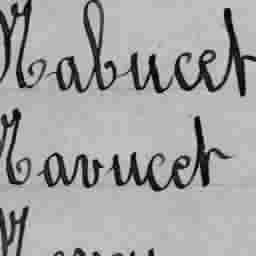 Nabucet
Navucet